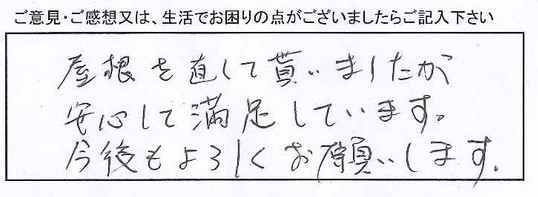 ご意見・ご感想又は、生活でお困りの点がございましたらご記入下さい
屋根を直して貰いましたが
安心して満足しています。
今後もよろしくお願いします。